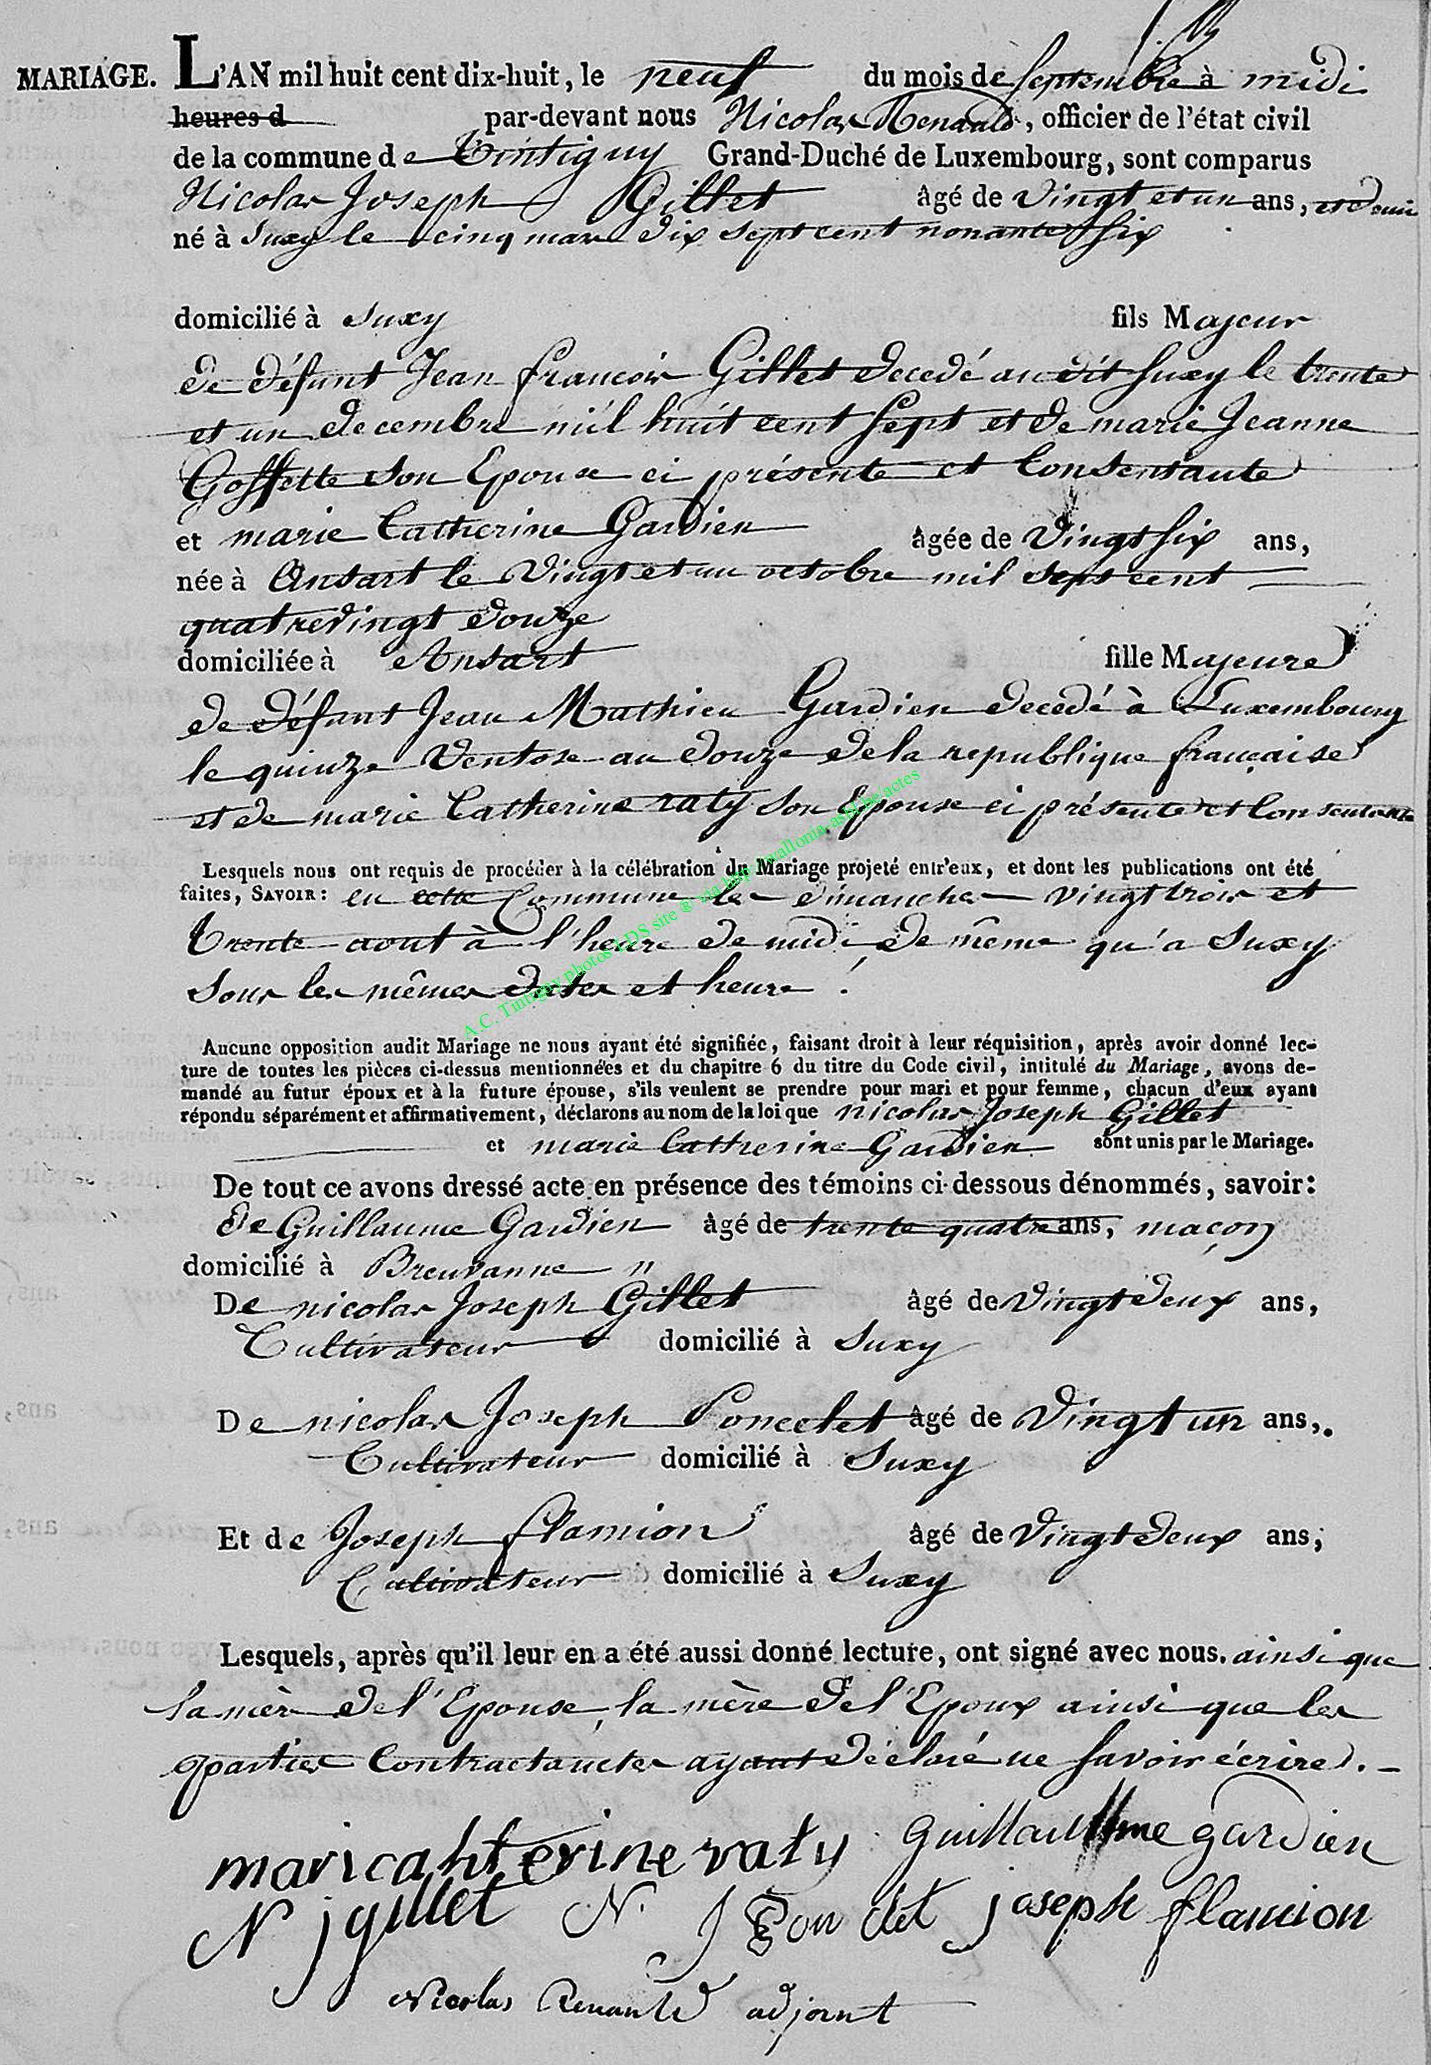 MARIAGE. L'AN mil huit cent dix-huit, le neuf du mois de septembre à midi
heures d par-devant nous Nicolas Renauld, officier de l'état civil
de la commune de tintigny Grand-Duché de Luxembourg, sont comparus
Nicolas Joseph Gillet âgé de vingt et un ans, et demi
né à Suxy le cinq mars dix sept cent nonante six
domicilié à Suxy fils Majeur
de défunt Jean francois Gillet decedé au dit Suxy le trente
et un decembre mil huit cent sept et de marie Jeanne
Goffette son Epouse ci présente et Consentante
et marie Catherine Gardien âgée de vingt six ans,
née à Ansart le vingt et un octobre mil sept cent
quatrevingt douze
domiciliée à Ansart fille Majeure
de défunt Jean Mathieu Gardien decedé à Luxembourg
le quinze Ventose an douze de la republique française
et de marie Catherine raty son Epouse ci présente et Consentante
Lesquels nous ont requis de procéder à la célébration du Mariage projeté entr'eux, et dont les publications ont été
faites, SAVOIR: en cette Commune les dimanches vingt trois et
trente aout à l'heure de midi, de même qu'a Suxy
sous les mêmes dates et heure.
Aucune opposition audit Mariage ne nous ayant été signifiée, faisant droit à leur réquisition, après avoir donné lec-
ture de toutes les pièces ci-dessus mentionnées et du chapitre 6 du titre du Code civil, intitulé du Mariage, avons de-
mandé au futur époux et à la future épouse, s'ils veulent se prendre pour mari et pour femme, chacun d'eux ayant
répondu séparément et affirmativement, déclarons au nom de la loi que nicolas Joseph Gillet
et marie Catherine Gardien sont unis par le Mariage.
De tout ce avons dressé acte en présence des témoins ci-dessous dénommés, savoir:
de Guillaume Gardien âgé de trente quatre ans, maçon
domicilié à Breuvanne "
De nicolas Joseph Gillet âgé de vingt deux ans,
Cultivateur domicilié à Suxy
De nicolas Joseph Poncelet âgé de vingt un ans,.
Cultivateur domicilié à Suxy
Et de Joseph flamion âgé de vingt deux ans;
Cultivateur domicilié à Suxy
Lesquels, après qu'il leur en a été aussi donné lecture, ont signé avec nous. ainsi que
la mère de l'Epouse, la mère de l'Epoux ainsi que les
parties Contractanctes ayant déclaré ne savoir écrire. -
maricahterine raty guillaume gardien
N j gillet N. J Poncelet joseph flamion
Nicolas Renauld adjoint
A.C. Tintigny photos LDS site @ via http://wallonia-asbl.be/actes